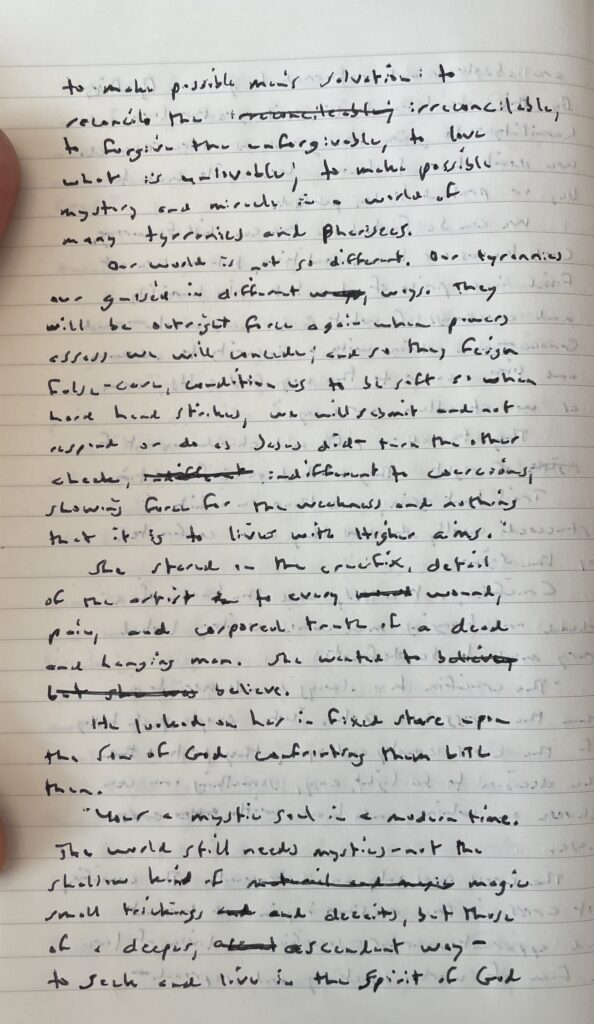 to make possible man's salvation: to
reconcile the irreconcileable, irreconcilable,
to forgive the unforgivable, to love
what is unlovable; to make possible
mystery and miracle in a world of
many tyrronies and Pharisees.
Our world is not so different. Our tyrannies
our guised in different ways, ways. They
will be outright force again when powers
assess we will concede; and so they feign
false-care, condition us to be soft so when
hard hand strikes, we will submit and not
respond or do as Jesus did- turn the other
cheek, indifferent indifferent to coercions,
showing force for the weakness and nothing
that it is to lives with Higher aims."
She stared on the crucifix, detail
of the artist to every wound,
pain, and corporeal truth of a dead
and hanging man. She wanted to believe,
but she was believe.
He looked on her in fixed stare upon
the Son of God confronting them both
then.
"Your a mystic soul in a modern time.
The world still needs mystics-not the
shallow kind of and magic magic
small trickings and and deceits, but those
of a deeper, ascendant way-
to seek and live in the Spirit of God